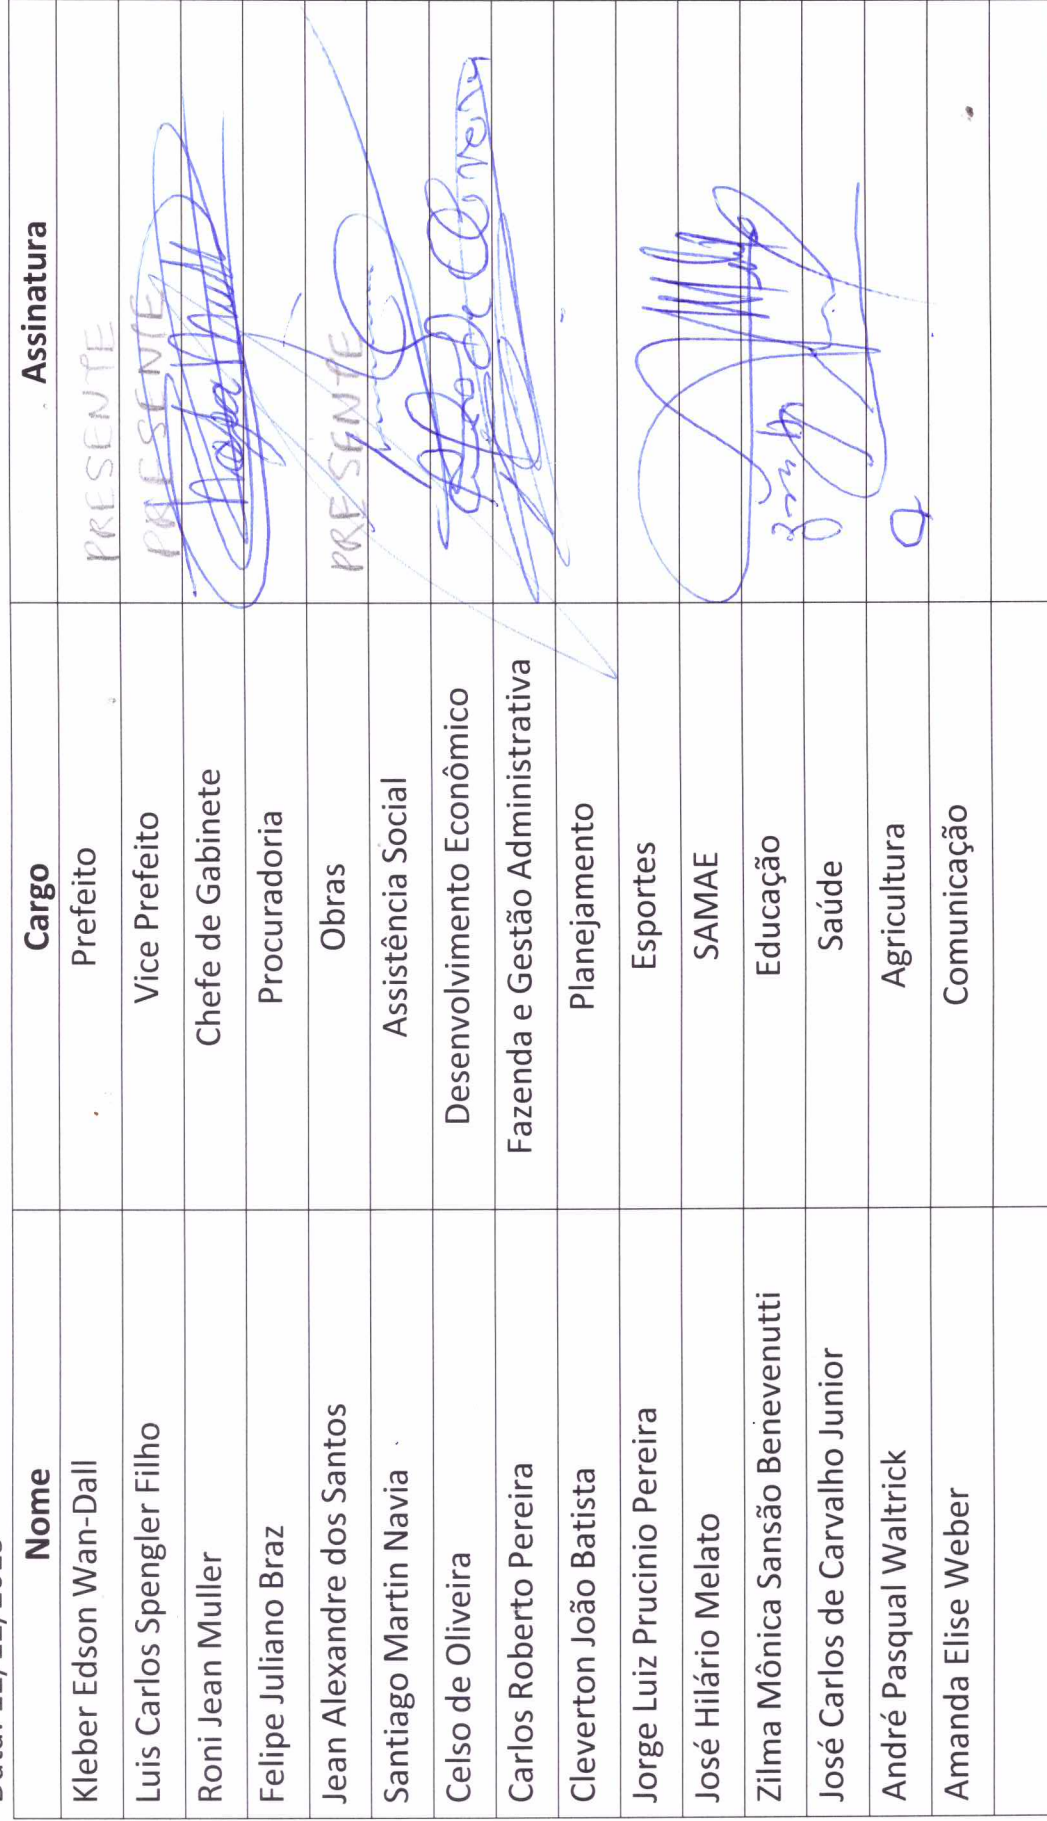 Nome Cargo Assinatura
Kleber Edson Wan-Dall Prefeito PRESENTE
Luis Carlos Spengler Filho Vice Prefeito PRESENTE
Roni Jean Muller Chefe de Gabinete
Felipe Juliano Braz Procuradoria
Jean Alexandre dos Santos Obras PRESENTE
Santiago Martin Navia Assistência Social
Celso de Oliveira Desenvolvimento Econômico
Carlos Roberto Pereira Fazenda e Gestão Administrativa
Cleverton João Batista Planejamento
Jorge Luiz Prucinio Pereira Esportes
José Hilário Melato SAMAE
Zilma Mônica Sansão Benevenutti Educação
José Carlos de Carvalho Junior Saúde
André Pasqual Waltrick Agricultura
Amanda Elise Weber Comunicação